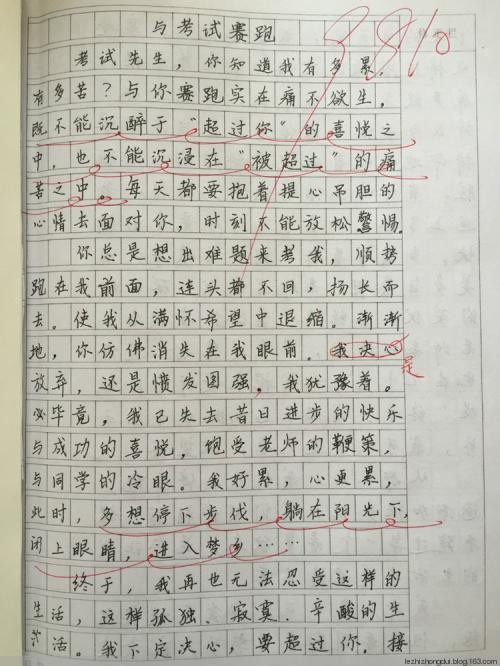 与考试赛跑
考试先生，你知道我有多累，
有多苦？与你赛跑实在痛不欲生，
既不能沉醉于“超过你”的喜悦之
中，也不能沉浸在“被超过”的痛
苦之中。每天都要抱着提心吊胆的
心情去面对你，时刻不能放松警惕。
你总是想出难题来考我，顺势
跑在我前面，连头都不回，扬长而
去。使我从满怀希望中退缩。渐渐
地，你仿佛消失在我眼前。我决心
是
放弃，还是愤发图强，我犹豫着。
必毕竟，我已失去昔日进步的快乐
与成功的喜悦，饱受老师的鞭策，
与同学的冷眼。我好累，心更累，
此时，多想停下步伐，躺在阳光下，
闭上眼睛，进入梦乡……
终于，我再也无法忍受这样的
生活，这样孤独、寂寞、辛酸的生
活。我下定决心，要超过你。接
lezhizhongdui.blog.163.com